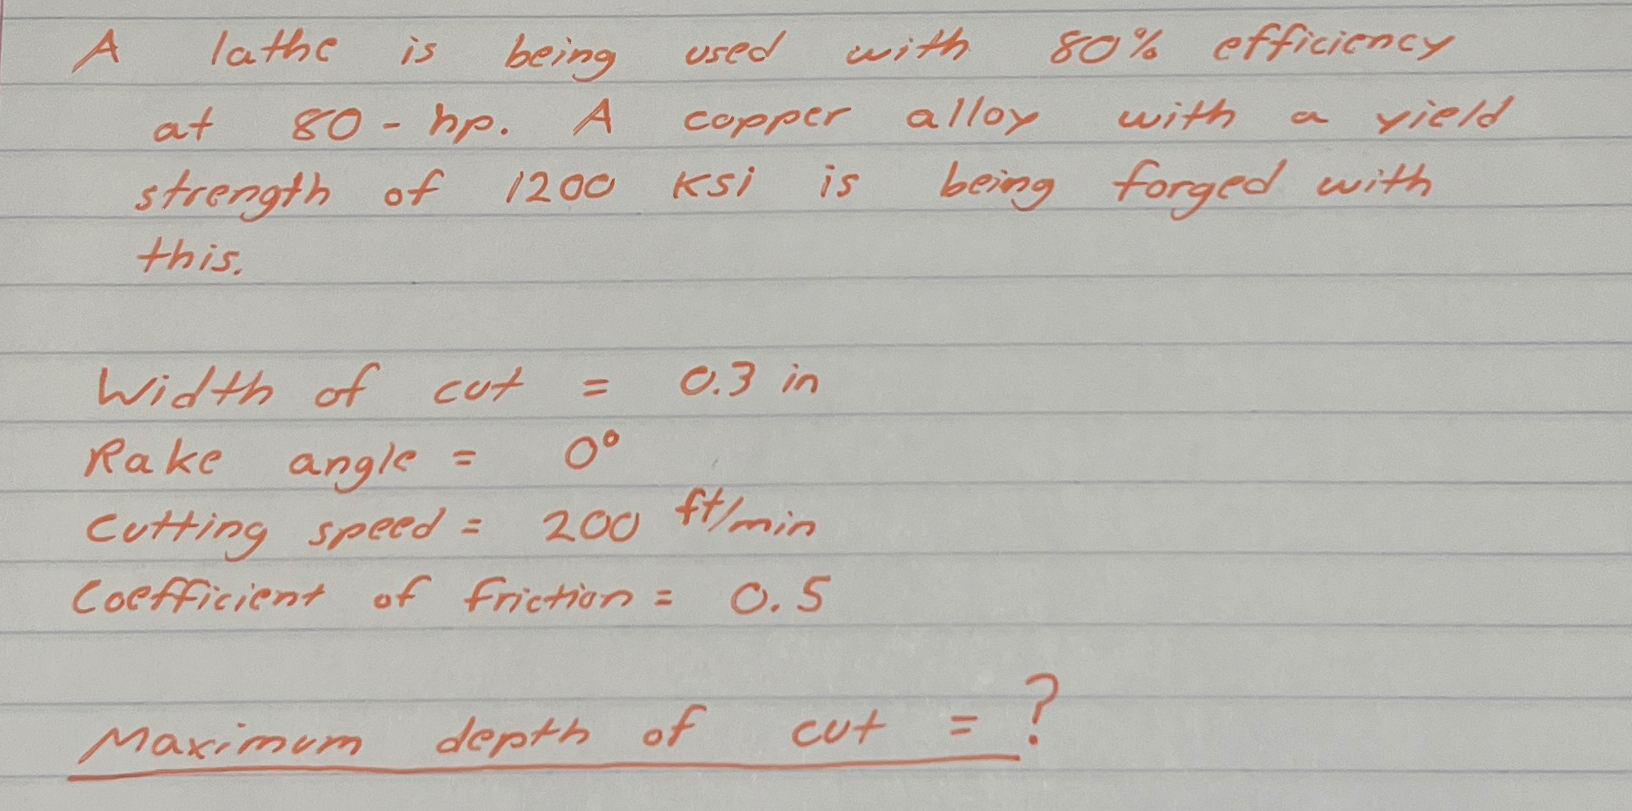 A lathe is being used with 80% efficiency
at 80-hp. A copper alloy with a yield
strength of 1200 ksi is being forged with
this.
Width of cut = 0.3 in
Rake angle = 0°
Cutting speed = 200 ft/min
Coefficient of friction = 0.5
Maximum depth of cut = ?